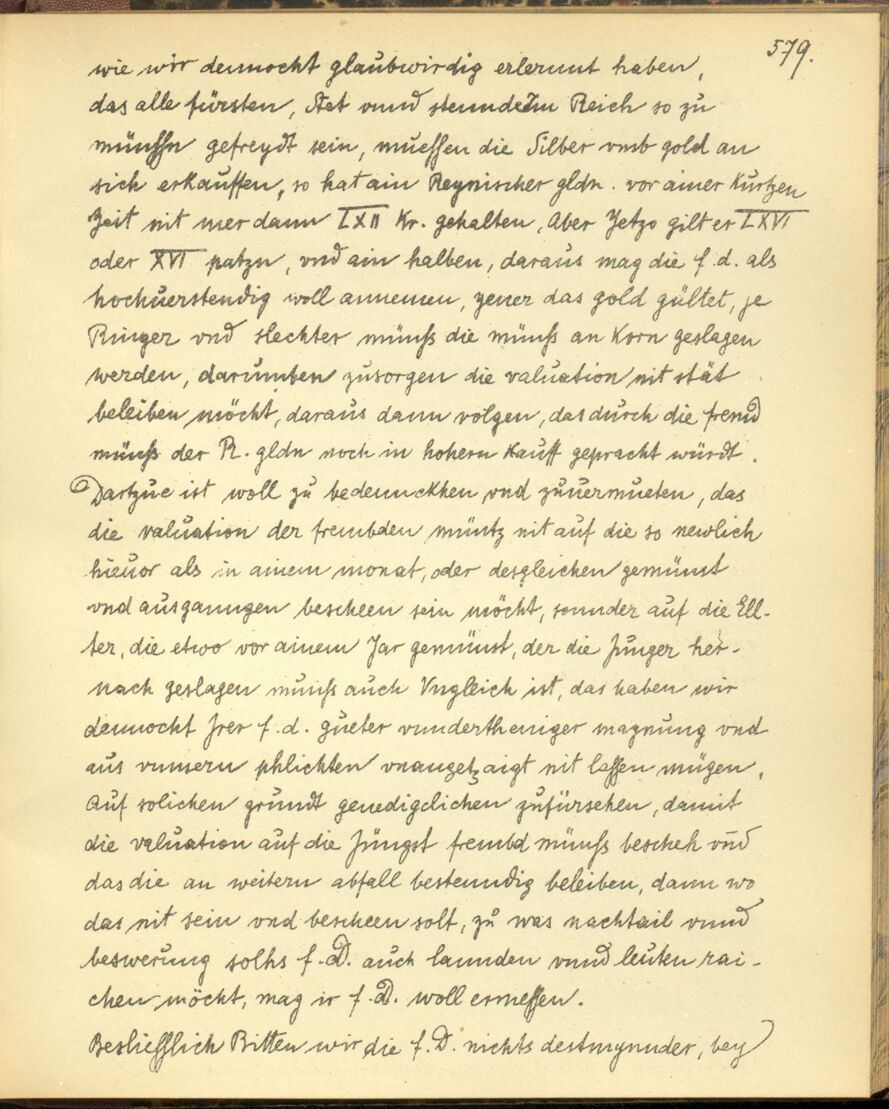 579.
wie wir dennocht glaubwirdig erlernnt haben,
das alle fürsten, Stet vnnd stennde Im Reich so zu
münssn gefreydt sein, muessen die Silber vmb gold an
sich erkauffen, so hat ain Reynischer gldn. vor ainer Kurtzen
Zeit nit mer dann LXII Kr. gehalten, Aber Jetzo gilt er LXVI
oder XVI patzn, vnd ain halben, daraus mag die f.d. als
hochuerstendig woll annemen, yener das gold gültet, je
Ringer vnd slechter münss die münss an Korn geslagen
werden, darumben zusorgen die valuation nit stät
beleiben möcht, daraus dann volgen, das durch die fremd
münss der R. gldn noch in hohern Kauff gepracht würdt.
Dartzue ist woll zu bedennckhen vnd zuuermueten, das
die valuation der frembden müntz nit auf die so newlich
hieuor als in ainem monat, oder desgleichen gemünst
vnd ausganngen bescheen sein möcht, sonnder auf die Ell-
ter, die etwo vor ainem Jar gemünst, der die Jünger her-
nach geslagen münss auch Vngleich ist, das haben wir
dennocht Jrer f.d. gueter vnndertheniger maynung vnd
aus vnnsern phlichten vnangetzaigt nit lassen mügen,
Auf solichen grundt genedigclichen zufürsehen, damit
die valuation auf die Jüngst frembd münss bescheh vnd
das die an weitern abfall bestenndig beleiben, dann wo
das nit sein vnd bescheen solt, zu was nachtail vnnd
beswerung solhs f.D. auch lannden vnnd leuten rai-
chen möcht, mag ir f.D. woll ermessen.
Beslieslich Bitten wir die f.D. nichts destmynnder, bey